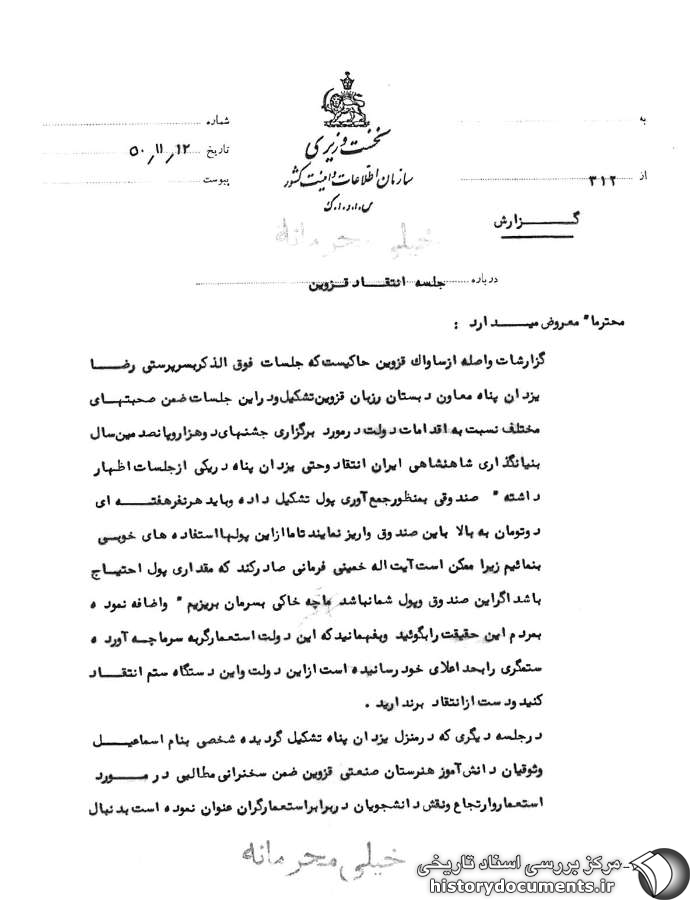 به
شماره
نخست وزیری
تاریخ ۵۰٫۱۱٫۱۲
سازمان اطلاعات و امنیت کشور
از ۳۱۲
پیوست
س.ا.و.ا.ک
گزارش
خیلی محرمانه
درباره جلسه انتقاد قزوین
محترما" معروض میدارد :
گزارشات واصله ازساواك قزوین حاکیست که جلسات فوق الذکربسرپرستی رضا
یزدان پناه معاون دبستان رزبان قزوین تشکیل ودراین جلسات ضمن صحبتهای
مختلف نسبت به اقدامات دولت درمورد برگزاری جشنهای دوهزاروپانصدمین سال
بنیانگذاری شاهنشاهی ایران انتقاد وحتی یزدان پناه دریکی ازجلسات اظهار
داشته " صندوقی بمنظورجمع آوری پول تشکیل داده وباید هرنفرهفته ای
دوتومان به بالا باین صندوق واریز نمایند تاماازاین پولهااستفاده های خوبی
بنمائیم زیرا ممکن است آیت اله خمینی فرمانی صادرکند که مقداری پول احتیاج
باشد اگراین صندوق وپول شمانباشد ماچه خاکی بسرمان بریزیم " واضافه نموده
بمردم این حقیقت رابگوئید وبفهمانیدکه این دولت استعمارگربه سرماچه آورده
ستمگری رابحداعلای خودرسانیده است ازاین دولت واین دستگاه ستم انتقاد
کنیدودست ازانتقاد برندارید .
درجلسه دیگری که درمنزل یزدان پناه تشکیل گردیده شخصی بنام اسماعیل
وثوقیان دانش آموز هنرستان صنعتی قزوین ضمن سخنرانی مطالبی درمورد
استعماروارتجاع ونقش دانشجویان دربرابراستعمارگران عنوان نموده است بدنبال
خیلی محرمانه
مرکز بررسی اسناد تاریخی
historydocuments.ir